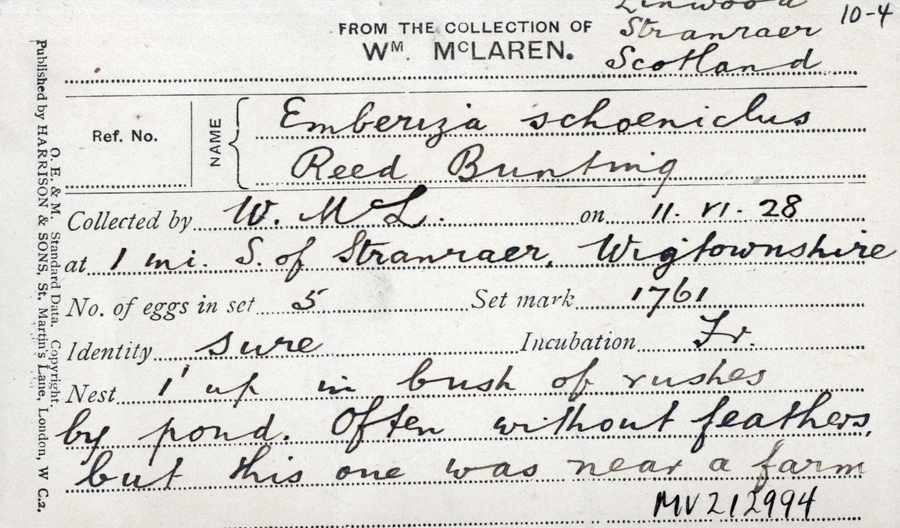 Linwood
10-4
FROM THE COLLECTION OF
Stranraer
Wᴹ. MᶜLAREN.
Scotland
Ref. No.
NAME
Emberiza schoeniclus
Reed Bunting
Collected by W. McL. on 11. VI. 28
at 1 mi. S. of Stranraer, Wigtownshire
No. of eggs in set 5 Set mark 1761
Identity sure Incubation Fr.
Nest 1' up in bush of rushes
by pond. Often without feathers,
but this one was near a farm
MV212994
O. E. & M. Standard Data. Copyright.
Published by HARRISON & SONS, St. Martin's Lane, London, W C.2.